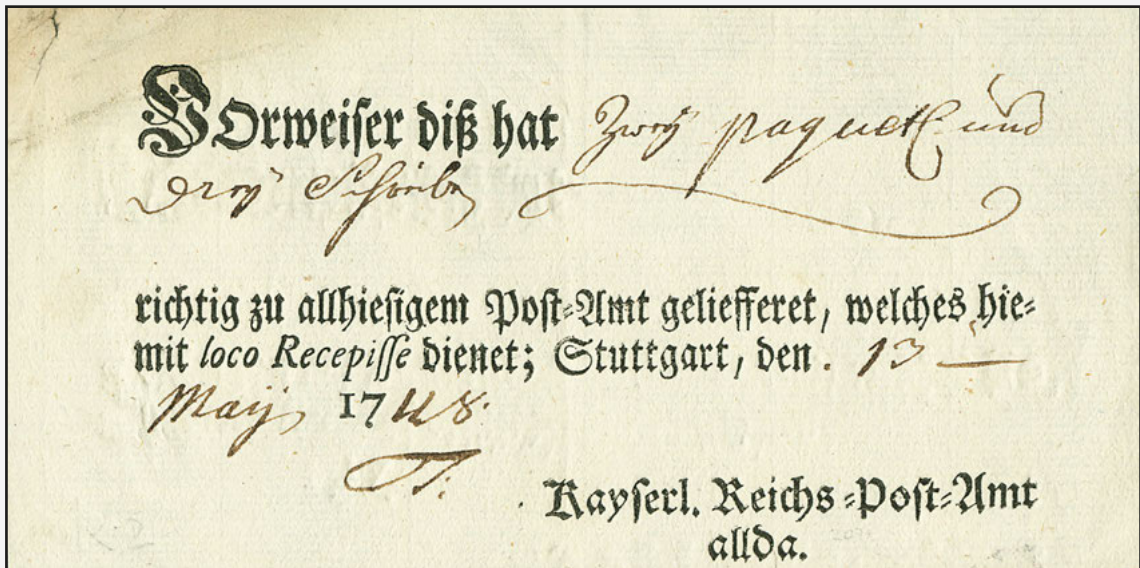 VOrweiser diß hat Zwey paquetl und
drey Schreiben
richtig zu allhiesigem Post-Amt gelieffert, welches hie-
mit loco Recepisse dienet; Stuttgart, den. 13
May 1748.
Kayserl. Reichs-Post-Amt
allda.